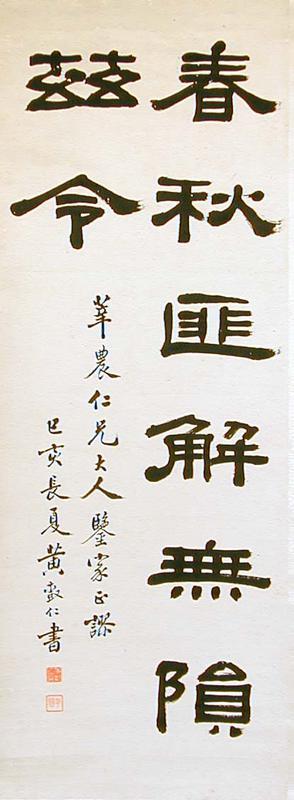 春秋匪解無隕
茲令
華農仁兄大人鑒家正謬
己亥長夏黃彝仁書